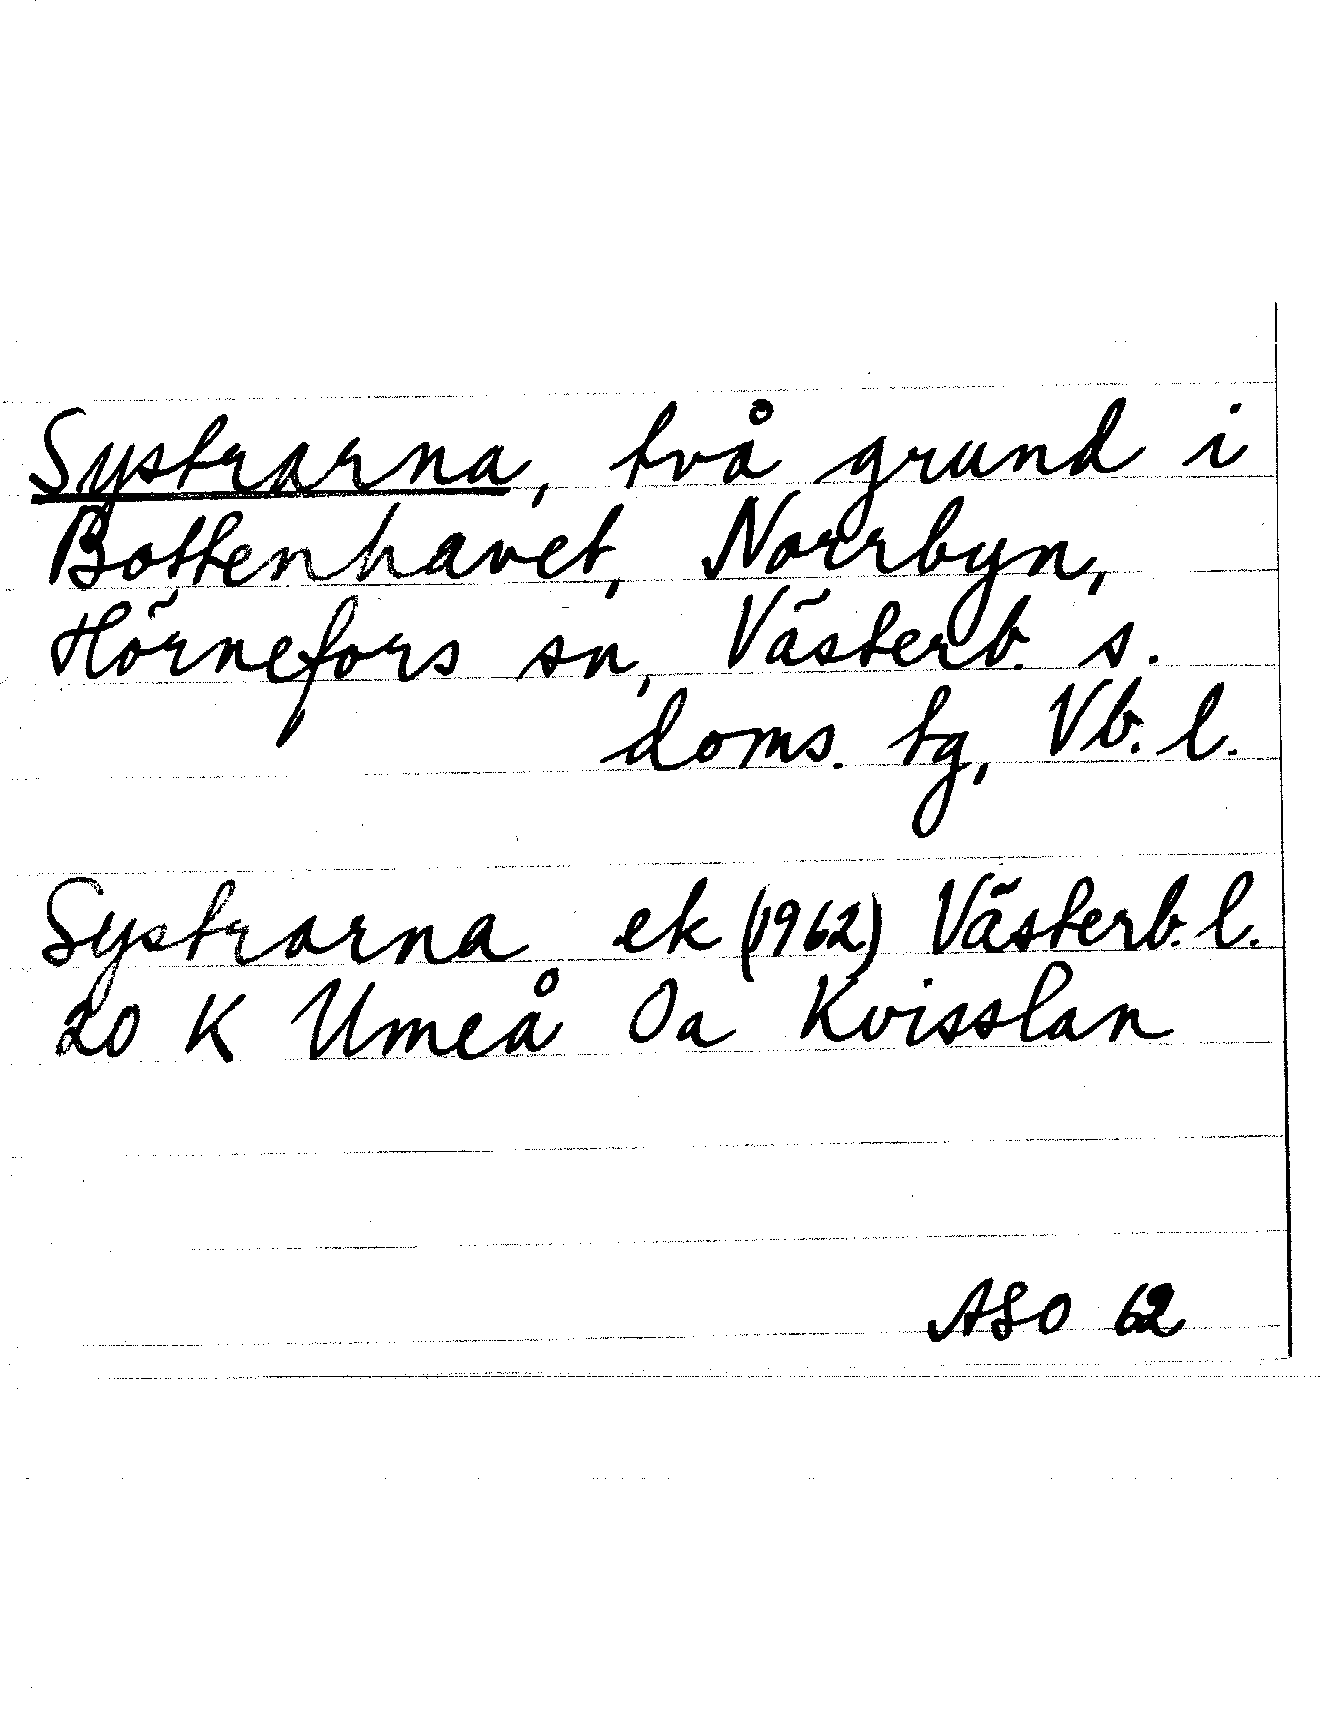 Systrarna, två grund i
Bottenhavet, Norrbyn,
Hörnefors sn, Västerb. s.
doms. tg, Vb. l.
Systrarna ek (1962) Västerb. l.
20 K Umeå 0a Kvisslan
ASO 62